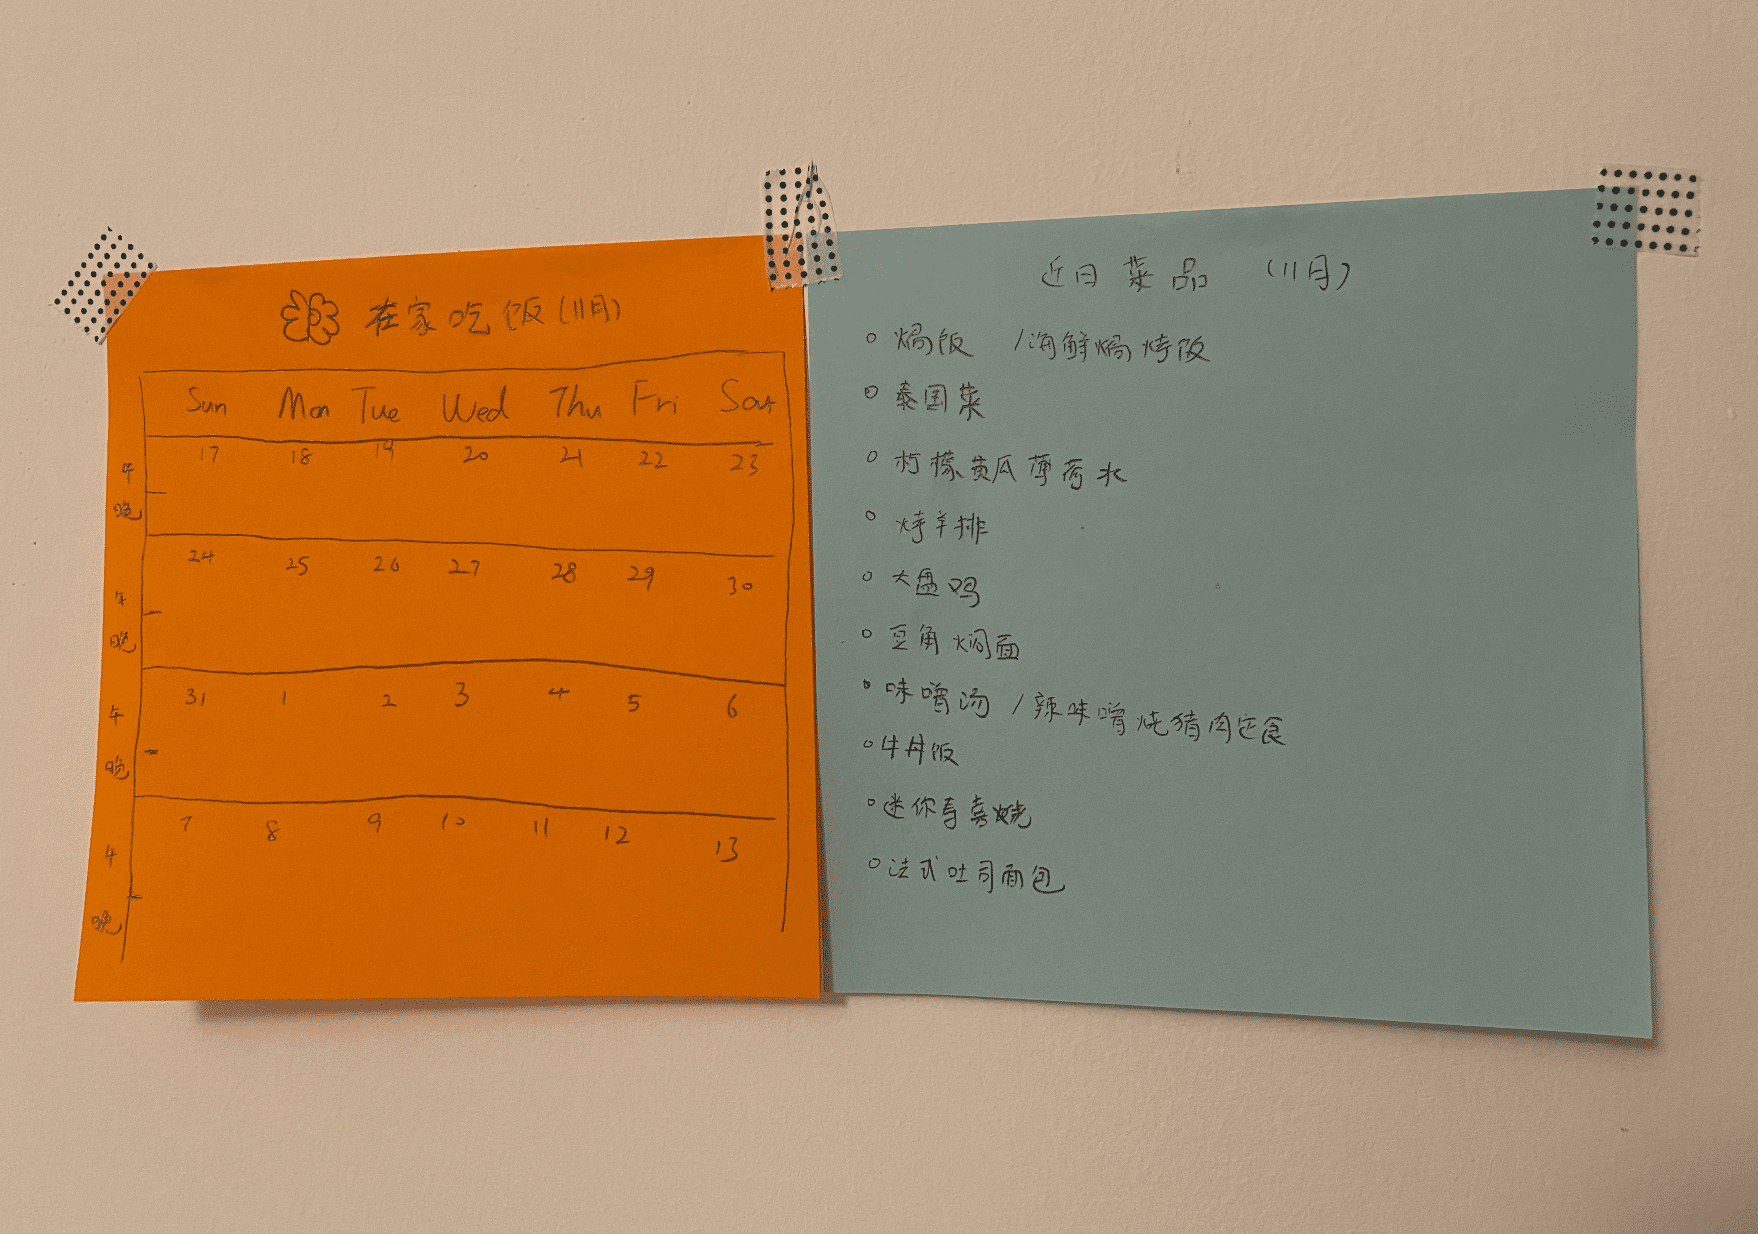 在家吃饭(11月)
Sun Mon Tue Wed Thu Fri Sat
17 18 19 20 21 22 23
午
晚
24 25 26 27 28 29 30
午
晚
31 1 2 3 4 5 6
午
晚
7 8 9 10 11 12 13
午
晚
近日菜品 (11月)
焗饭 /海鲜焗烤饭
泰国菜
柠檬黄瓜薄荷水
烤羊排
大盘鸡
豆角焖面
味噌汤 /辣味噌烧猪肉定食
牛丼饭
迷你寿喜烧
法式吐司面包